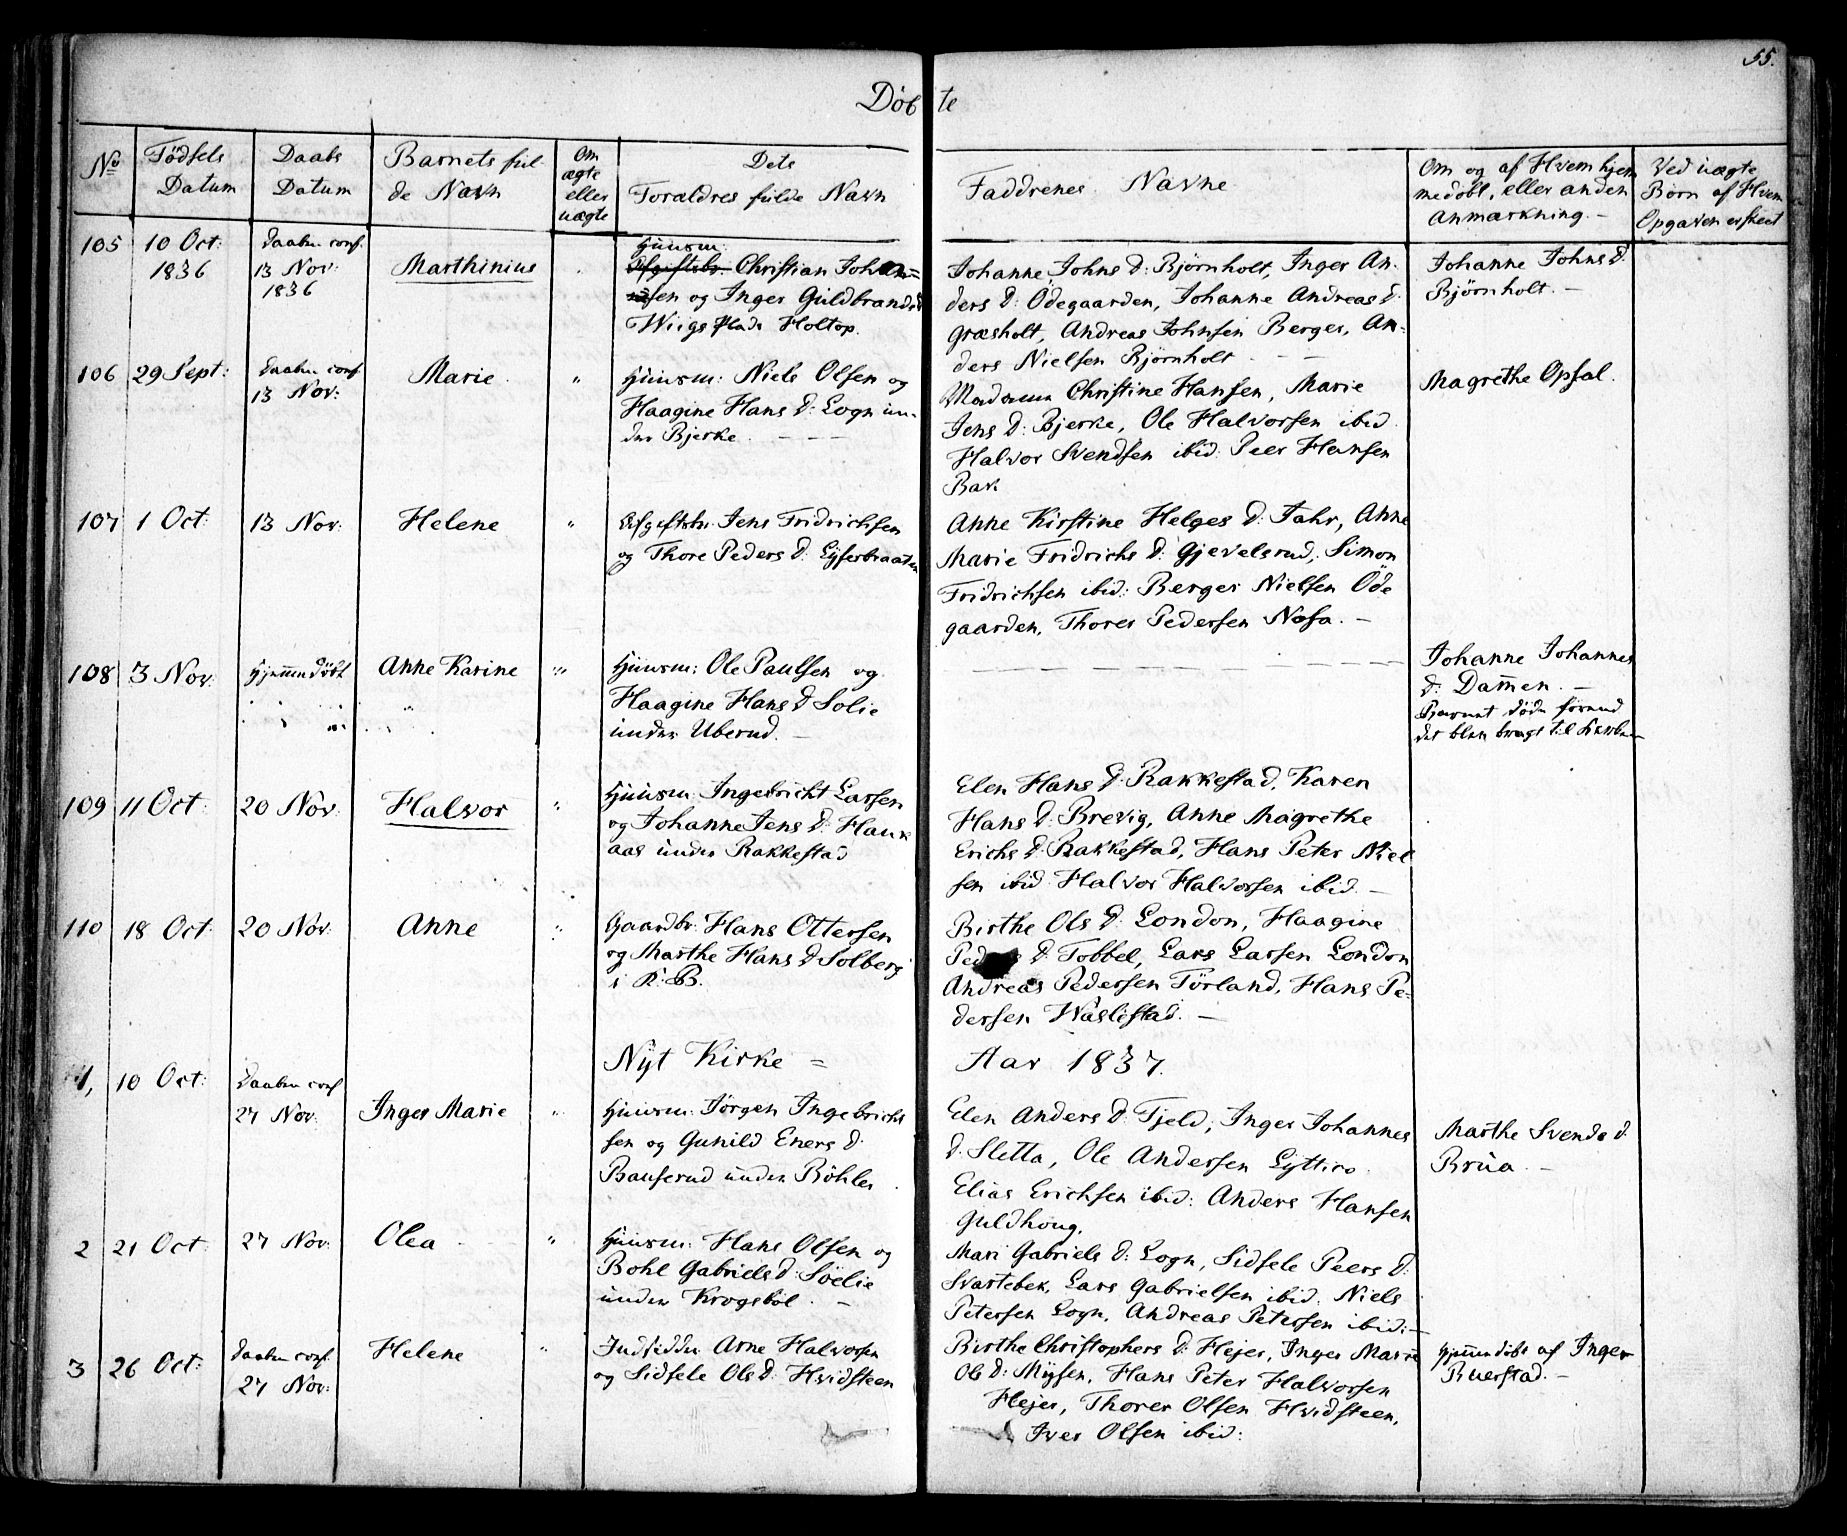 55.
Döbte
No
Födsels Datum
Daabs Datum
Barnets fulde Navn
Om ægte eller uægte
Dets Forældres fulde Navn
Faddrenes Navne
Om og af Hvem hjemmedøbt, eller anden Anmærkning. —
Ved uægte Børn af Hvem Opgaven er skeet
105
10 Oct: 1836
Daaben conf. 13 Nov: 1836
Marthinius
Huusm:
Afgiftsbr. Christian Johan=
sen og Inger Guldbrands d
Wiigs Plads Holtop.
Johanne Johns d: Björnholt, Inger An-
ders d: Ödegaarden, Johanne Andreas d:
Græsholt, Andreas Johnsen Berger, An-
ders Nielsen Björnholt — —
Johanne Johns d:
Björnholt. —
106
29 Sept:
Daaben conf. 13 Nov:
Marie
"
Huusm: Niels Olsen og
Haagine Hans d: Logn un-
der Bjerke. — — —
Madamm Christine Hansen, Marie
Jens d: Bjerke, Ole Halvorsen ibid.
Halvor Svendsen ibid: Peer Hansen
Bak
Magrethe Opsal.
107
1 Oct:
13 Nov:
Helene
"
Afgiftsbr: Jens Fridrichsen
og Thore Peders d: Lyserbraaten
Anne Kirstine Helges d: Jahr, Anne
Marie Fridrichs d: Gjevelsrud, Simon
Fridrichsen ibid: Berger Nielsen Öde
gaarden, Thorer Pedersen Nasa. —
108
3 Nov:
Hjemmedöbt
Anne Karine
"
Huusm: Ole Paulsen og
Haagine Hans d Solie
under Uberud. —
Johanne Johannes
d: Dammen. —
Barnet döde forend
det blev bragt til Kirke —
109
11 Oct:
20 Nov:
Halvor
"
Huusm: Ingebricht Larsen
og Johanne Jens d: Hauk
aas under Rakkestad
Elen Hans d: Rakkestad, Karen
Hans d: Brevig, Anne Magrethe
Erichs d: Rakkestad, Hans Peter Niel
sen ibid: Halvor Halvorsen ibid. —
110
18 Oct:
20 Nov:
Anne
"
Gaardbr: Hans Ottersen
og Marthe Hans d Solberg
i K: B.
Birthe Ols d: London, Haagine
d Tobbel, Lars Larsen London
Andreas Pedersen Törland, Hans Pe-
dersen Waslestad. —
Nyt Kirke =
Aar 1837.
1,
10 Oct:
Daaben conf 27 Nov:
Inger Marie
"
Huusm: Jörgen Ingebricht
sen og Gunild Eners d:
Bauserud under Böhler
Elen Anders d: Fjeld, Inger Johannes
d: Sletta, Ole Andersen Lyttiro
Elias Erichsen ibid: Anders Hansen
Guldhoug.
Marthe Svends d:
Brua. —
2
21 Oct:
27 Nov:
Olea
"
Huusm: Hans Olsen og
Bohl Gabriels d: Söelie
under Krogsböl. —
Mari Gabriels d: Logn, Sidsele Peers d:
Svartebek, Lars Gabrielsen ibid. Niels
Petersen Logn, Andreas Petersen ibid: —
3
26 Oct:
Daaben conf. 27 Nov:
Helene
"
Indsidder Arne Halvorsen
og Sidsele Ols d: Hvidsteen
Birthe Christophers d: Hejer, Inger Marie
Ols d: Mysen, Hans Peter Halvorsen
Hejer, Thorer Olsen Hvidsteen,
Iver Olsen ibid:
Hjemmedöbt af Inger
Buerstad. —